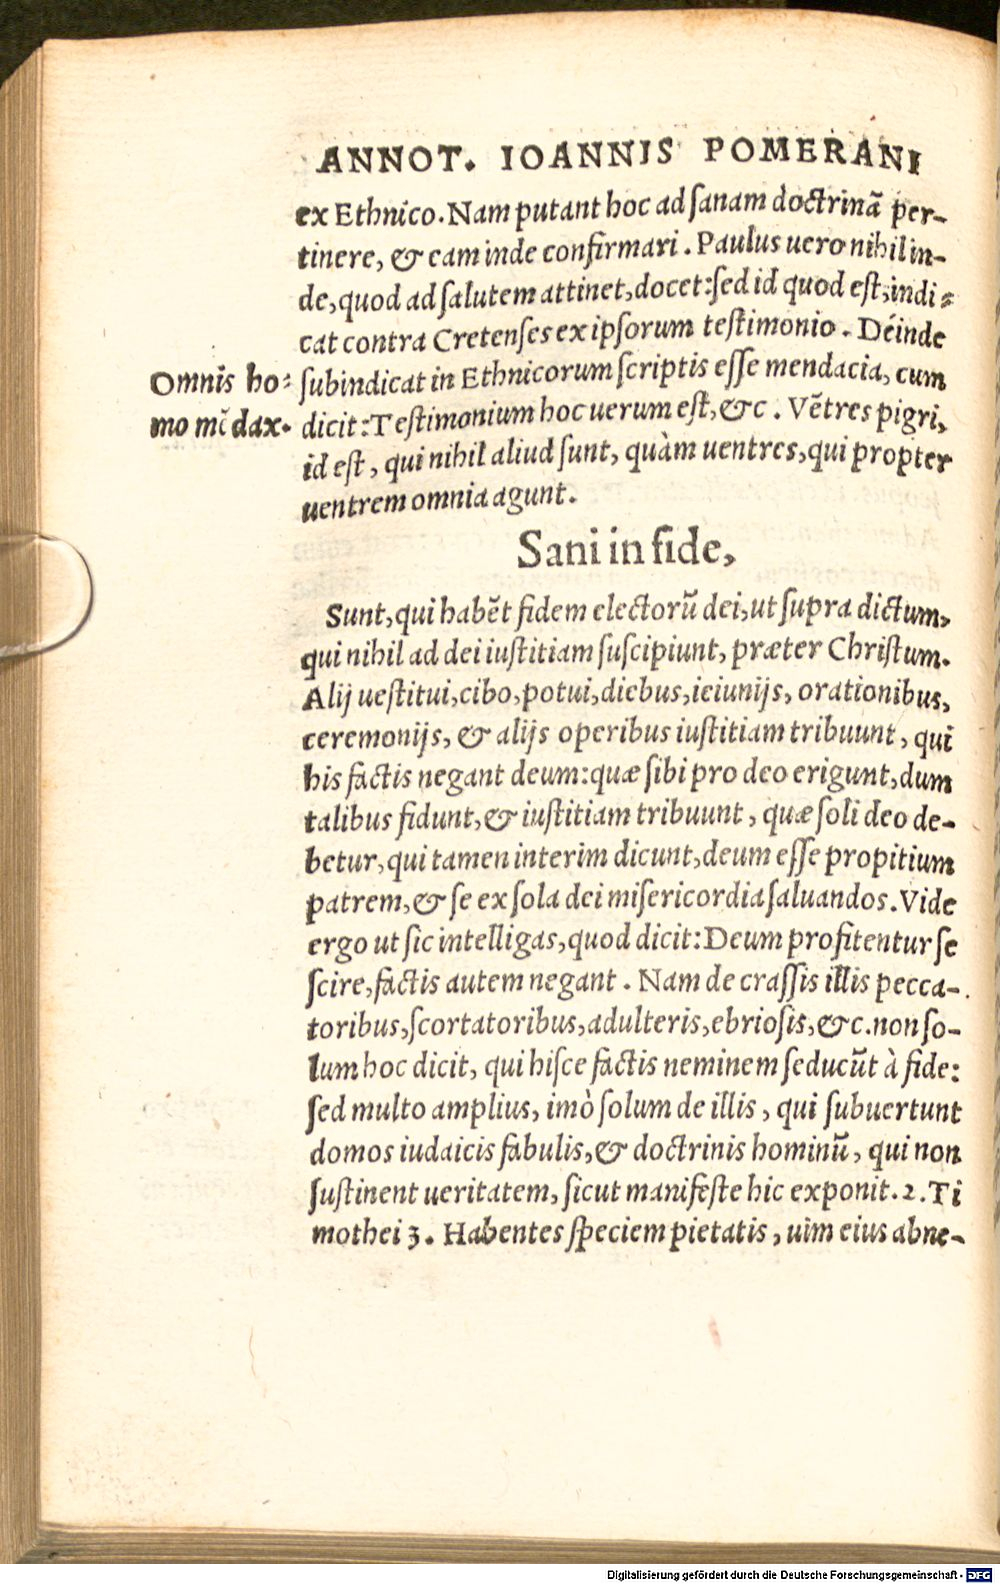 ANNOT. IOANNIS POMERANI
ex Ethnico. Nam putant hoc ad ſanam doctrinã per-
tinere, & eam inde confirmari. Paulus uero nihil in-
de, quod ad ſalutem attinet, docet: ſed id quod eſt, indi-
cat contra Cretenſes ex ipſorum teſtimonio. Deinde
Omnis ho-
mo mẽdax.
ſubindicat in Ethnicorum ſcriptis eſſe mendacia, cum
dicit: Teſtimonium hoc uerum eſt, &c. Vẽtres pigri,
id eſt, qui nihil aliud ſunt, quàm uentres, qui propter
uentrem omnia agunt.
Sani in fide,
Sunt, qui habẽt fidem electorũ dei, ut ſupra dictum,
qui nihil ad dei iuſtitiam ſuſcipiunt, præter Chriſtum.
Alij ueſtitui, cibo, potui, diebus, ieiunijs, orationibus,
ceremonijs, & alijs operibus iuſtitiam tribuunt, qui
his factis negant deum: quæ ſibi pro deo erigunt, dum
talibus fidunt, & iuſtitiam tribuunt, quæ ſoli deo de-
betur, qui tamen interim dicunt, deum eſſe propitium
patrem, & ſe ex ſola dei miſericordia ſaluandos. Vide
ergo ut ſic intelligas, quod dicit: Deum profitentur ſe
ſcire, factis autem negant. Nam de craſſis illis pecca-
toribus, ſcortatoribus, adulteris, ebrioſis, &c. non ſo-
lum hoc dicit, qui hiſce factis neminem ſeducũt à fide:
ſed multo amplius, imò ſolum de illis, qui ſubuertunt
domos iudaicis fabulis, & doctrinis hominũ, qui non
ſuſtinent ueritatem, ſicut manifeſte hic exponit. 2. Ti
mothei 3. Habentes ſpeciem pietatis, uim eius abne-
Digitalisierung gefördert durch die Deutsche Forschungsgemeinschaft - DFG